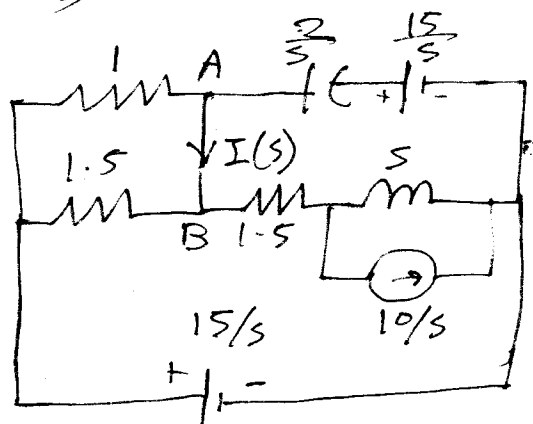 2/S 15/S
1 A
+ -
I(S)
1.5 S
B 1.5
15/S 10/S
+ -